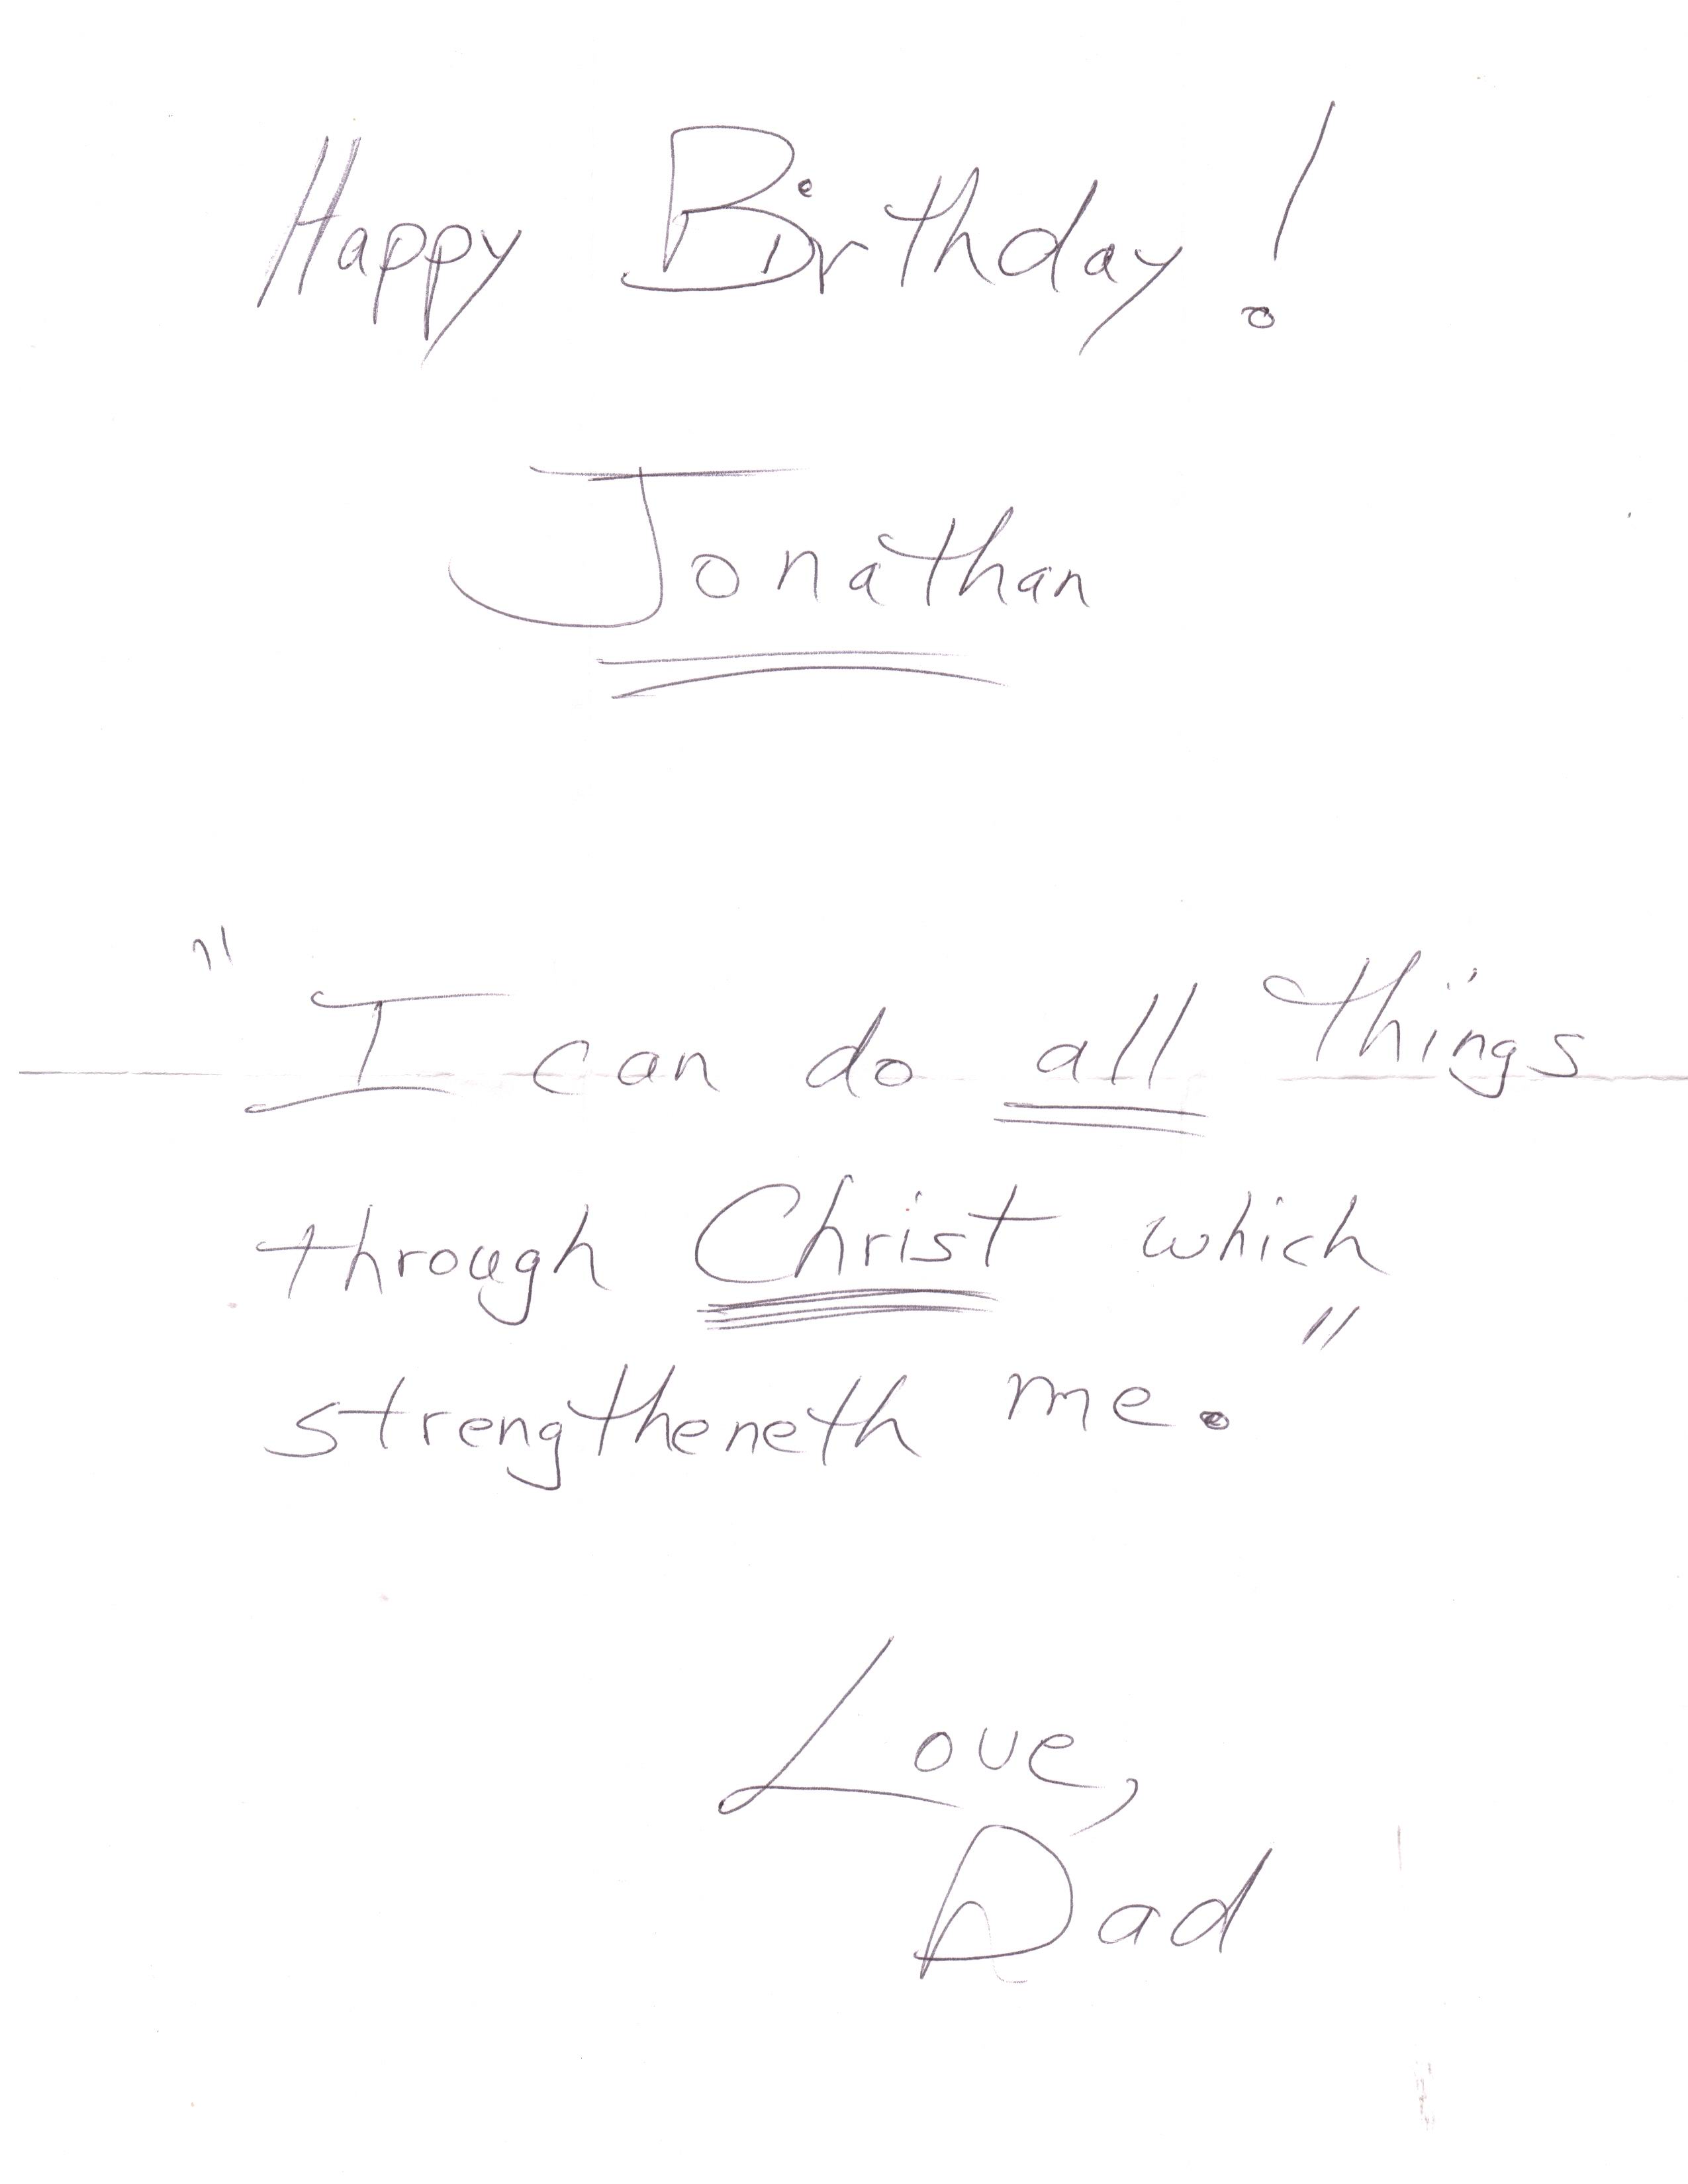 Happy Birthday!
Jonathan
"I can do all things
through Christ which
strengtheneth me."
Love,
Dad